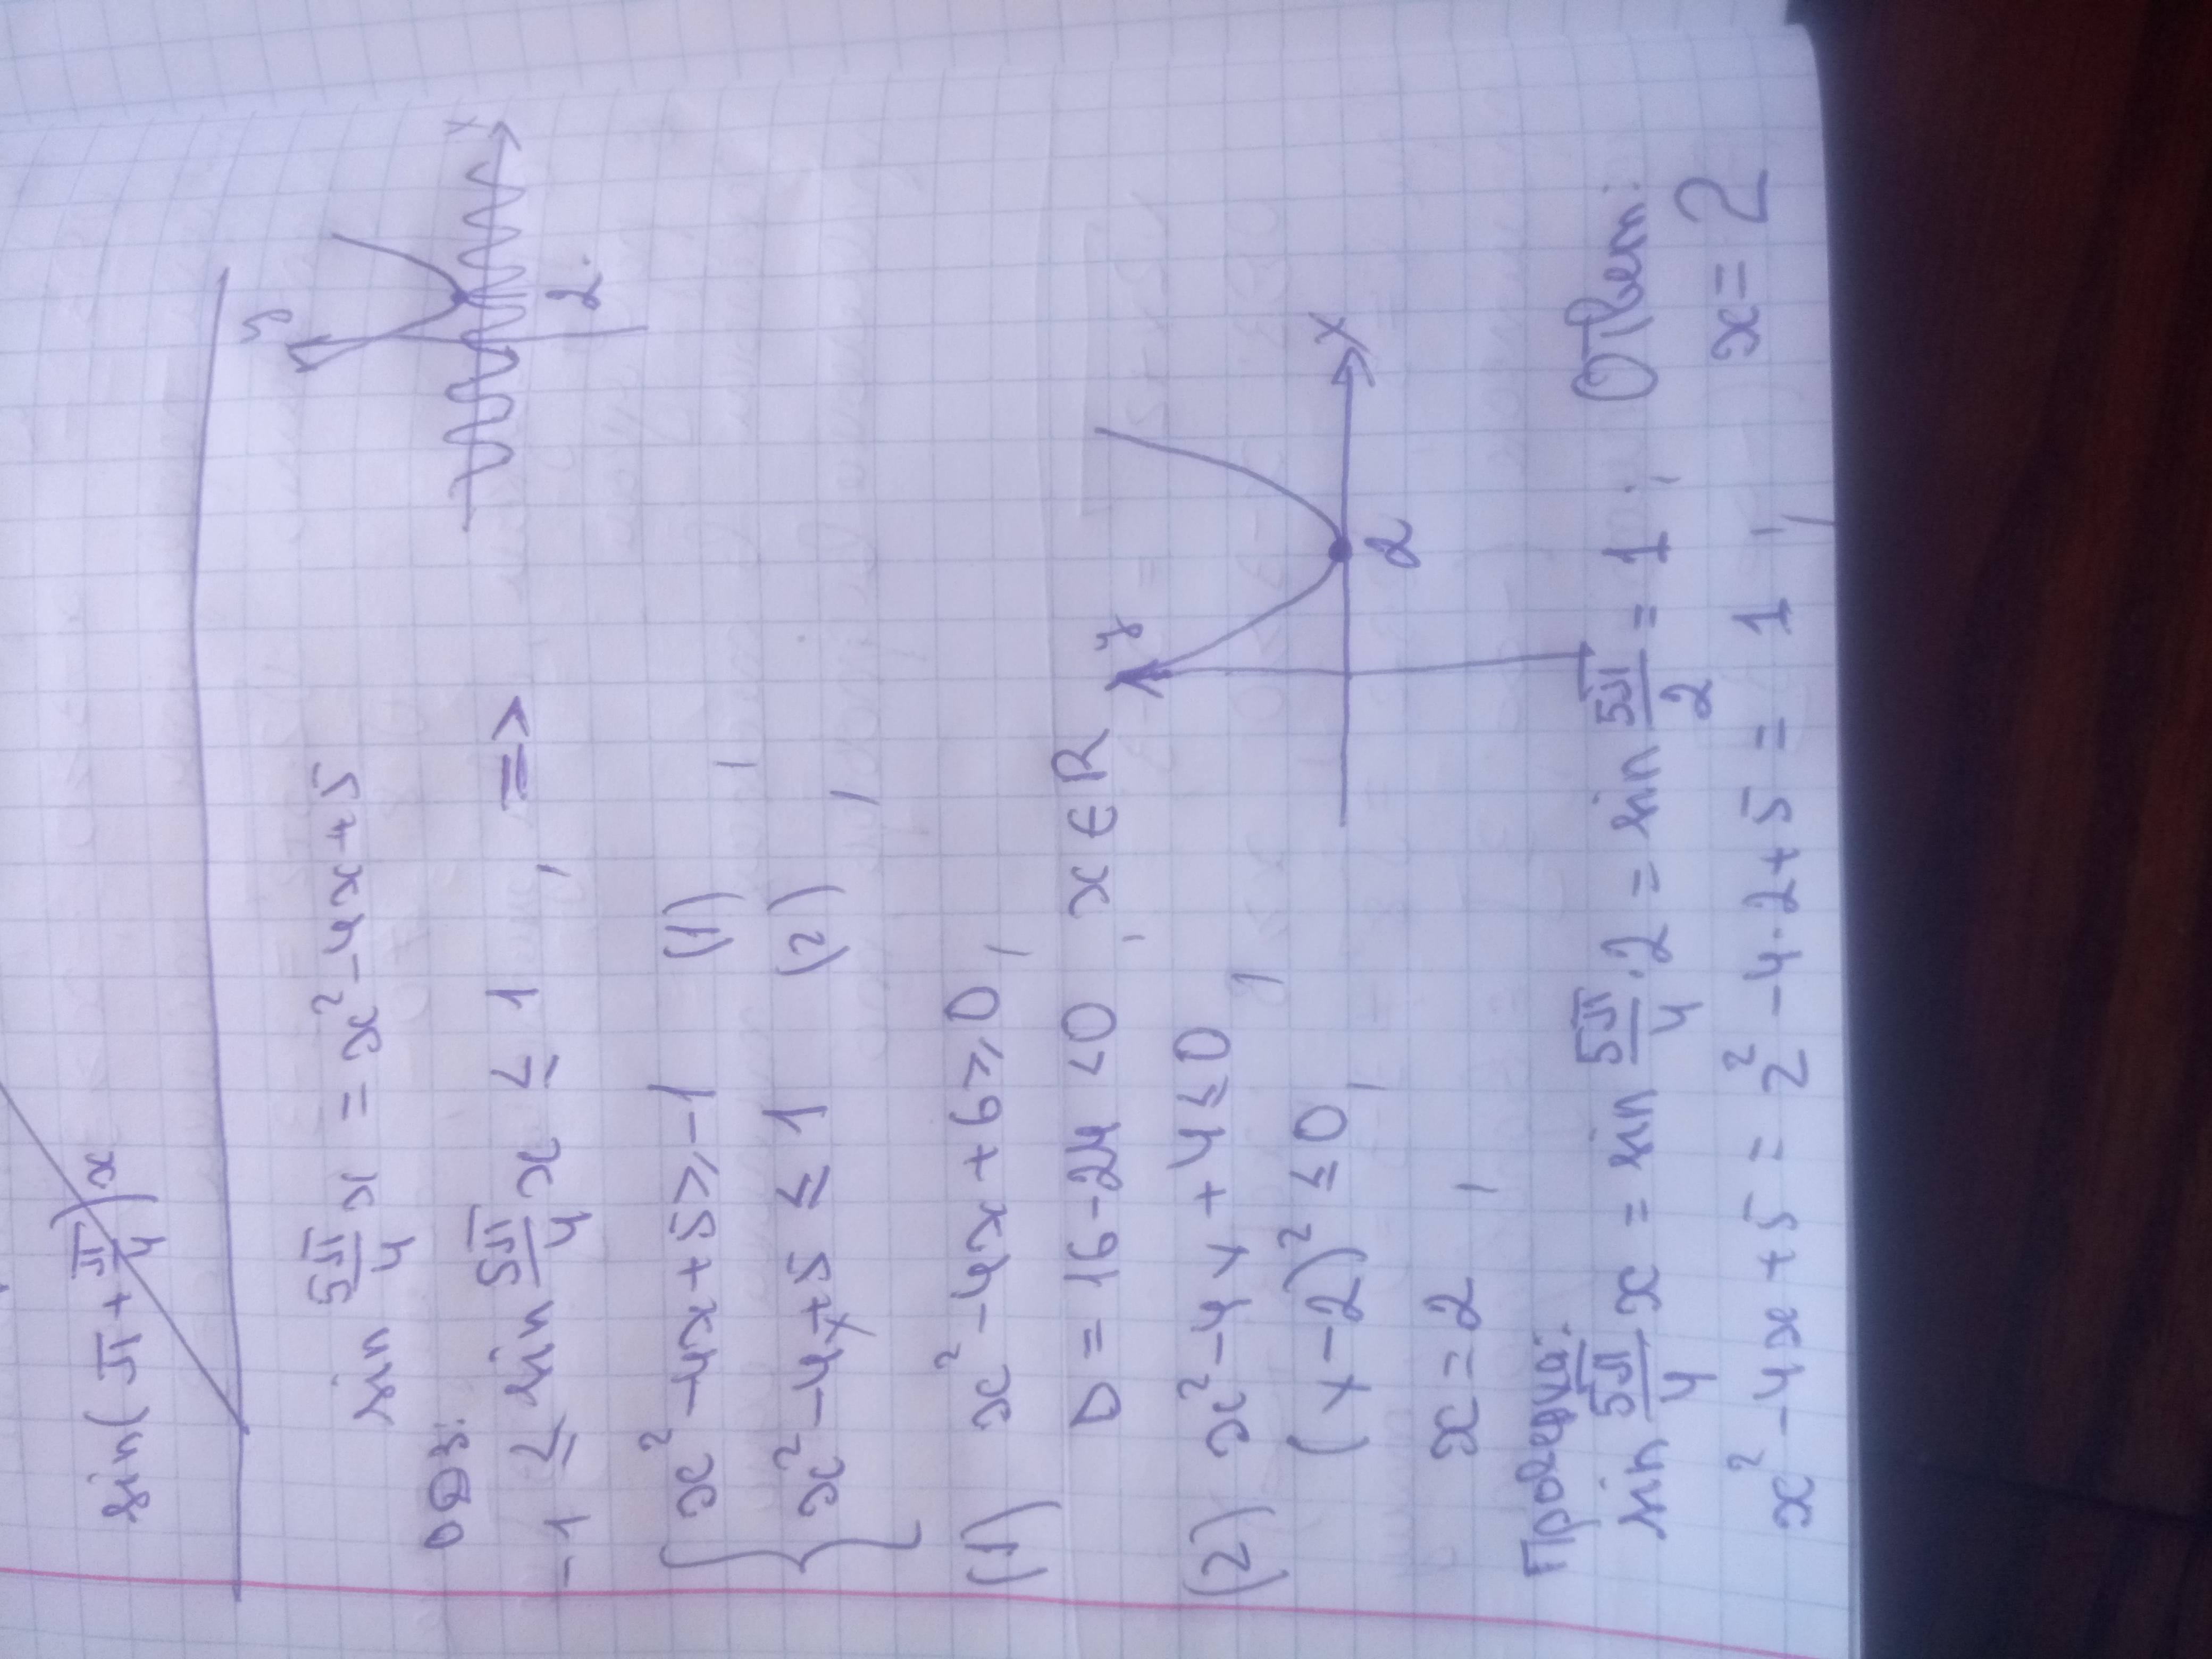 sin(π + π/4)x
sin 5π/4 x = x² - 4x + 5
y
x
2.
ОДЗ:
-1 ≤ sin 5π/4 x ≤ 1, =>
{ x² - 4x + 5 ≥ -1 (1),
x² - 4x + 5 ≤ 1 (2),
(1) x² - 4x + 6 ≥ 0,
D = 16 - 24 < 0, x ∈ R
(2) x² - 4x + 4 ≤ 0,
(x - 2)² ≤ 0,
x = 2,
y
x
2
Проверка:
sin 5π/4 x = sin 5π/4 · 2 = sin 5π/2 = 1;
x² - 4x + 5 = 2² - 4·2 + 5 = 1,
Ответ:
x = 2